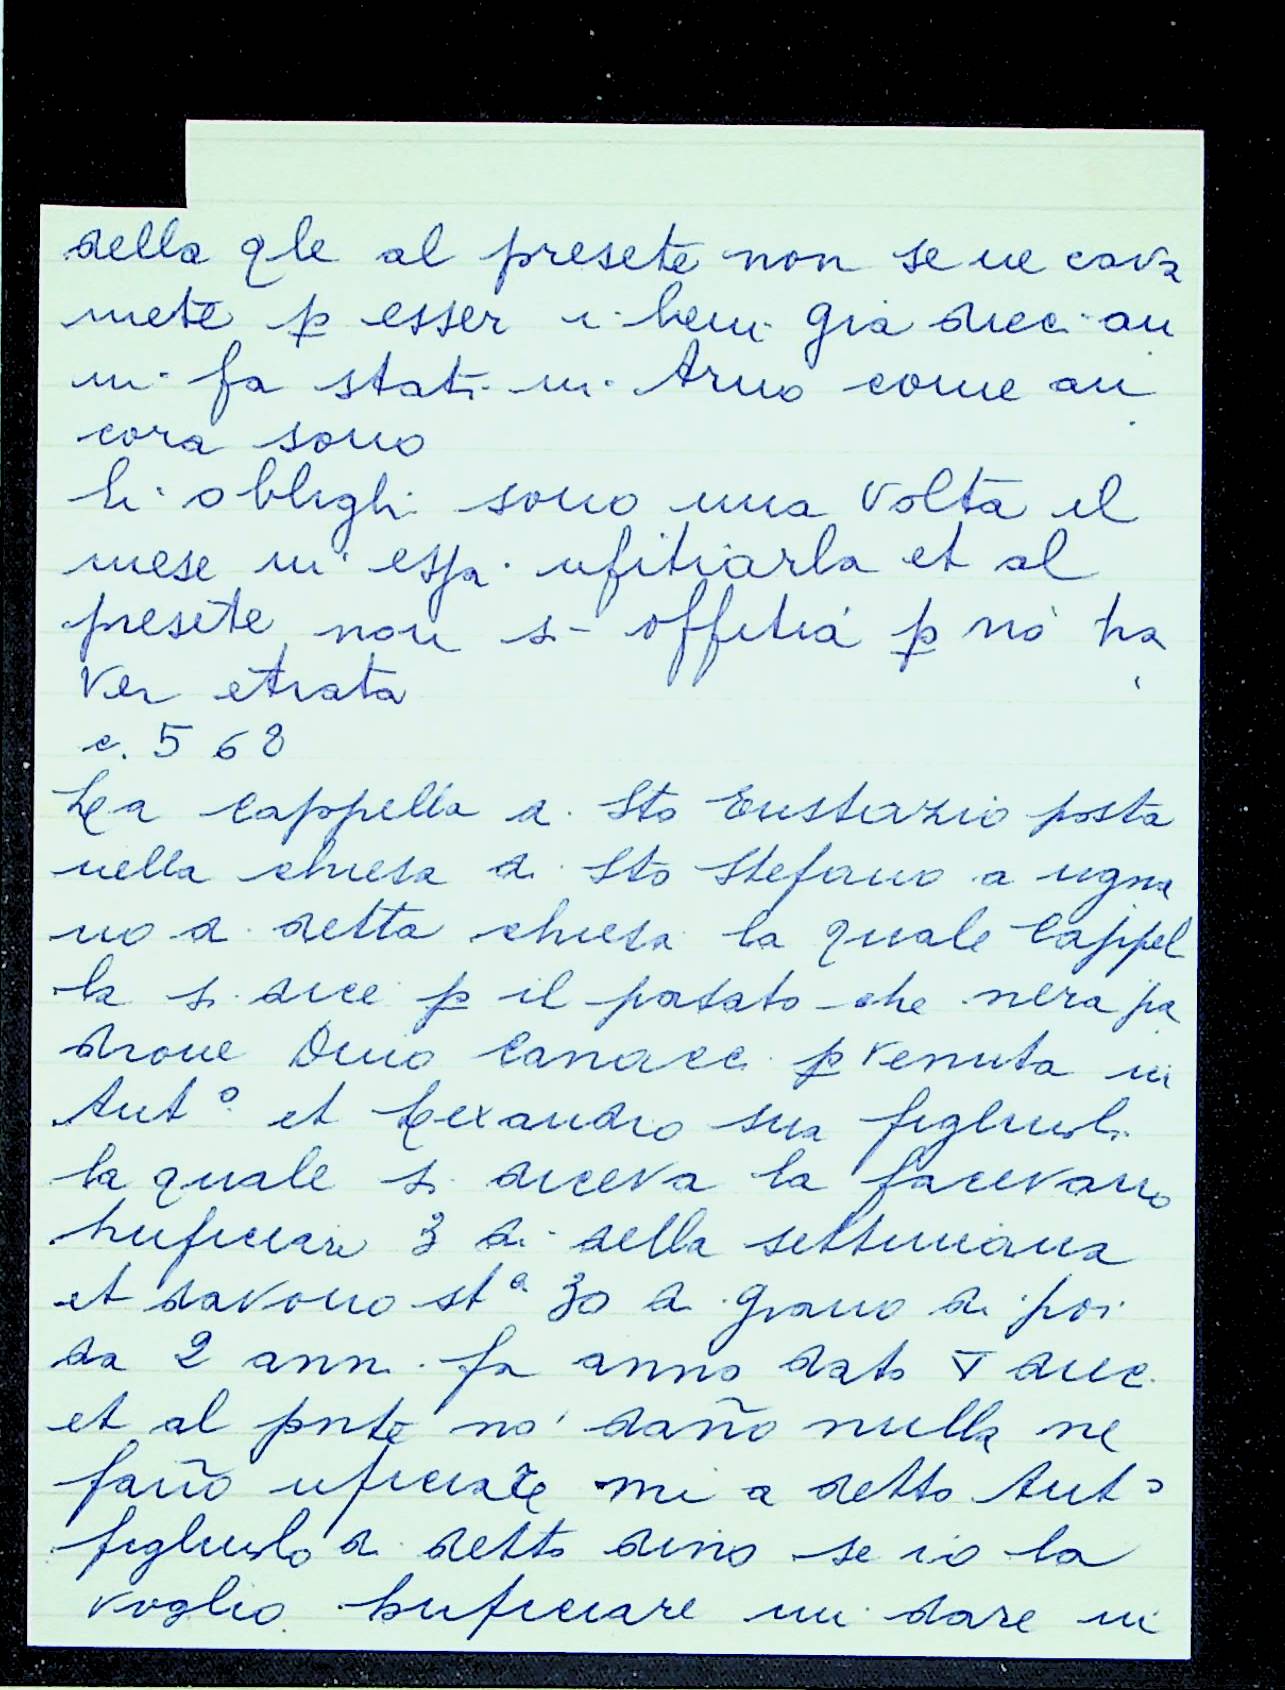 della qle al presēte non se ne cava
niēte p esser i beni già dieci an
ni fa stati in Arno come an
cora sono
li oblighi sono una volta il
mese in essa ufitiarla et al
presēte non si offitia p nō ha
ver ētrata
c. 568
La Cappella di Sto Eustazio posta
nella chiesa di Sto Stefano a ugna
no di detta chiesa la quale Cappel
la si dice p il passato che nera pa
drone Dino Canacci pvenuta in
Antº et Lexandro sua figliuoli
la quale si diceva la facevano
huficiare 3 dì della settimana
et davono stª 30 di grano di poi
da 2 anni fa anno dato ∇ dieci
et al pnte nō dan̄o nulla ne
fan̄o uficiare mi a detto Antº
figliuolo di detto dino se io la
voglio huficiare mi dare in